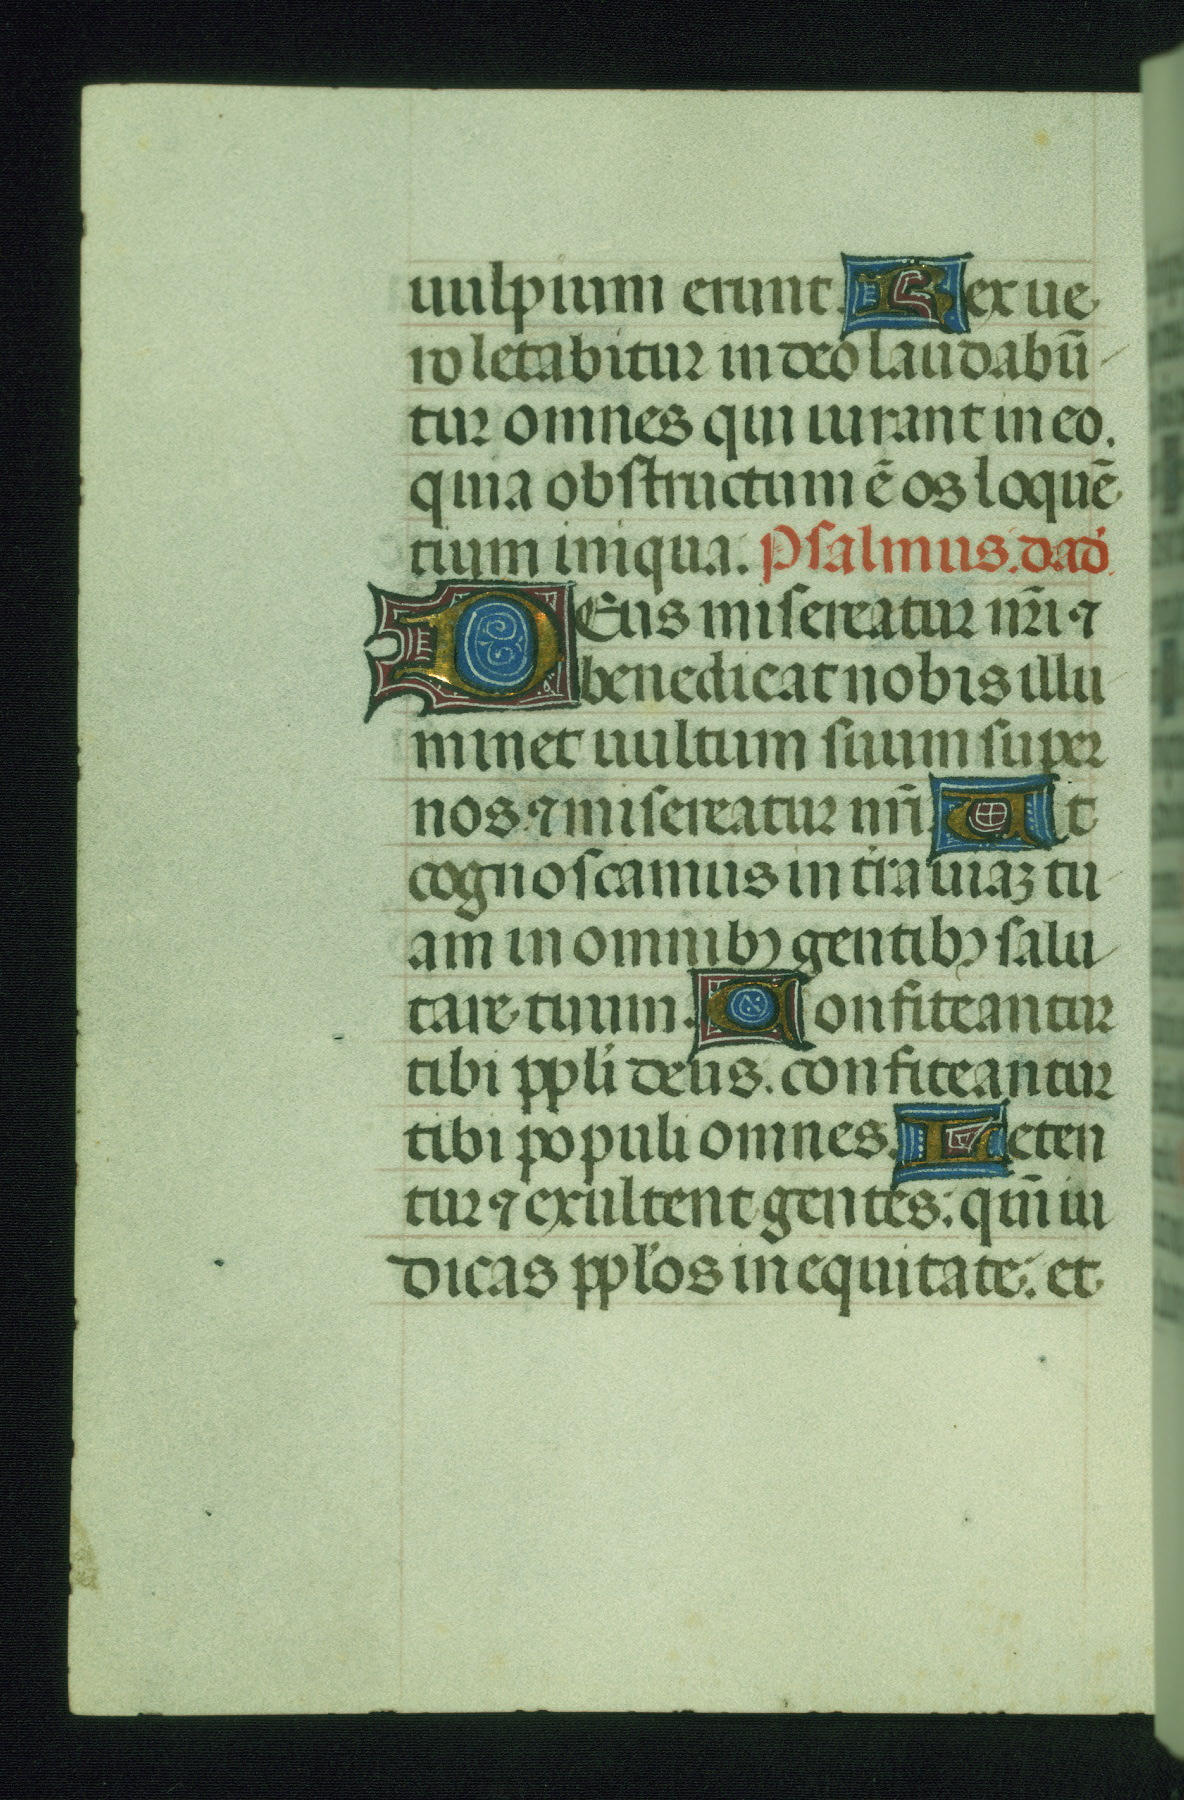 uulpium erunt. Rex ue
ro letabitur in deo laudabū
tur omnes qui iurant in eo.
quia obstructum ē os loquē
tium iniqua. Psalmus. dad̄
DEus misereatur nr̄i ⁊
benedicat nobis illu
minet uultum suum super
nos. ⁊ misereatur nr̄i. Ut
cognoscamus in t̄ra uiaꝫ tu
am in omnibꝫ gentibꝫ salu
tare tuum. Confiteantur
tibi ppl̄i deus. confiteantur
tibi populi omnes. Leten
tur ⁊ exultent gentes: qm̄ iu
dicas ppl̄os in equitate. et